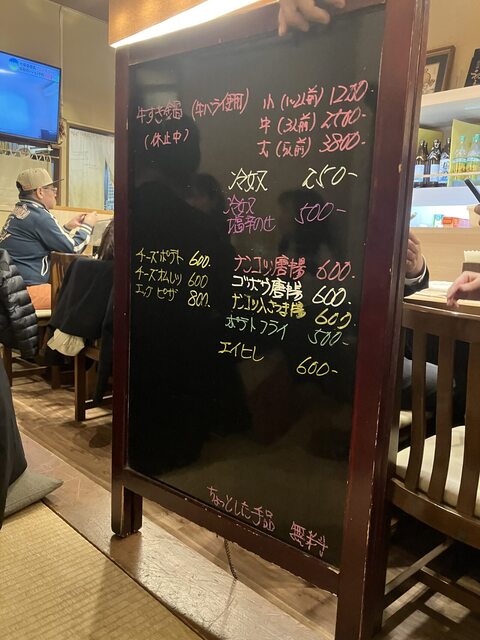 牛すき鍋 (牛バラ使用) 小(1~2人前) 1200
(休止中) 中(3人前) 2600-
大(5人前) 3800-
冷奴 250-
冷奴 500-
塩辛のせ
チーズポテト 600.
チーズオムレツ 600
エッグピザ 800.
ナンコツ唐揚 600.
ゴボウ唐揚 600.
ナンコツ入さつま揚 600
ポテトフライ 500-
エイヒレ 600-
ちょっとした手品 無料